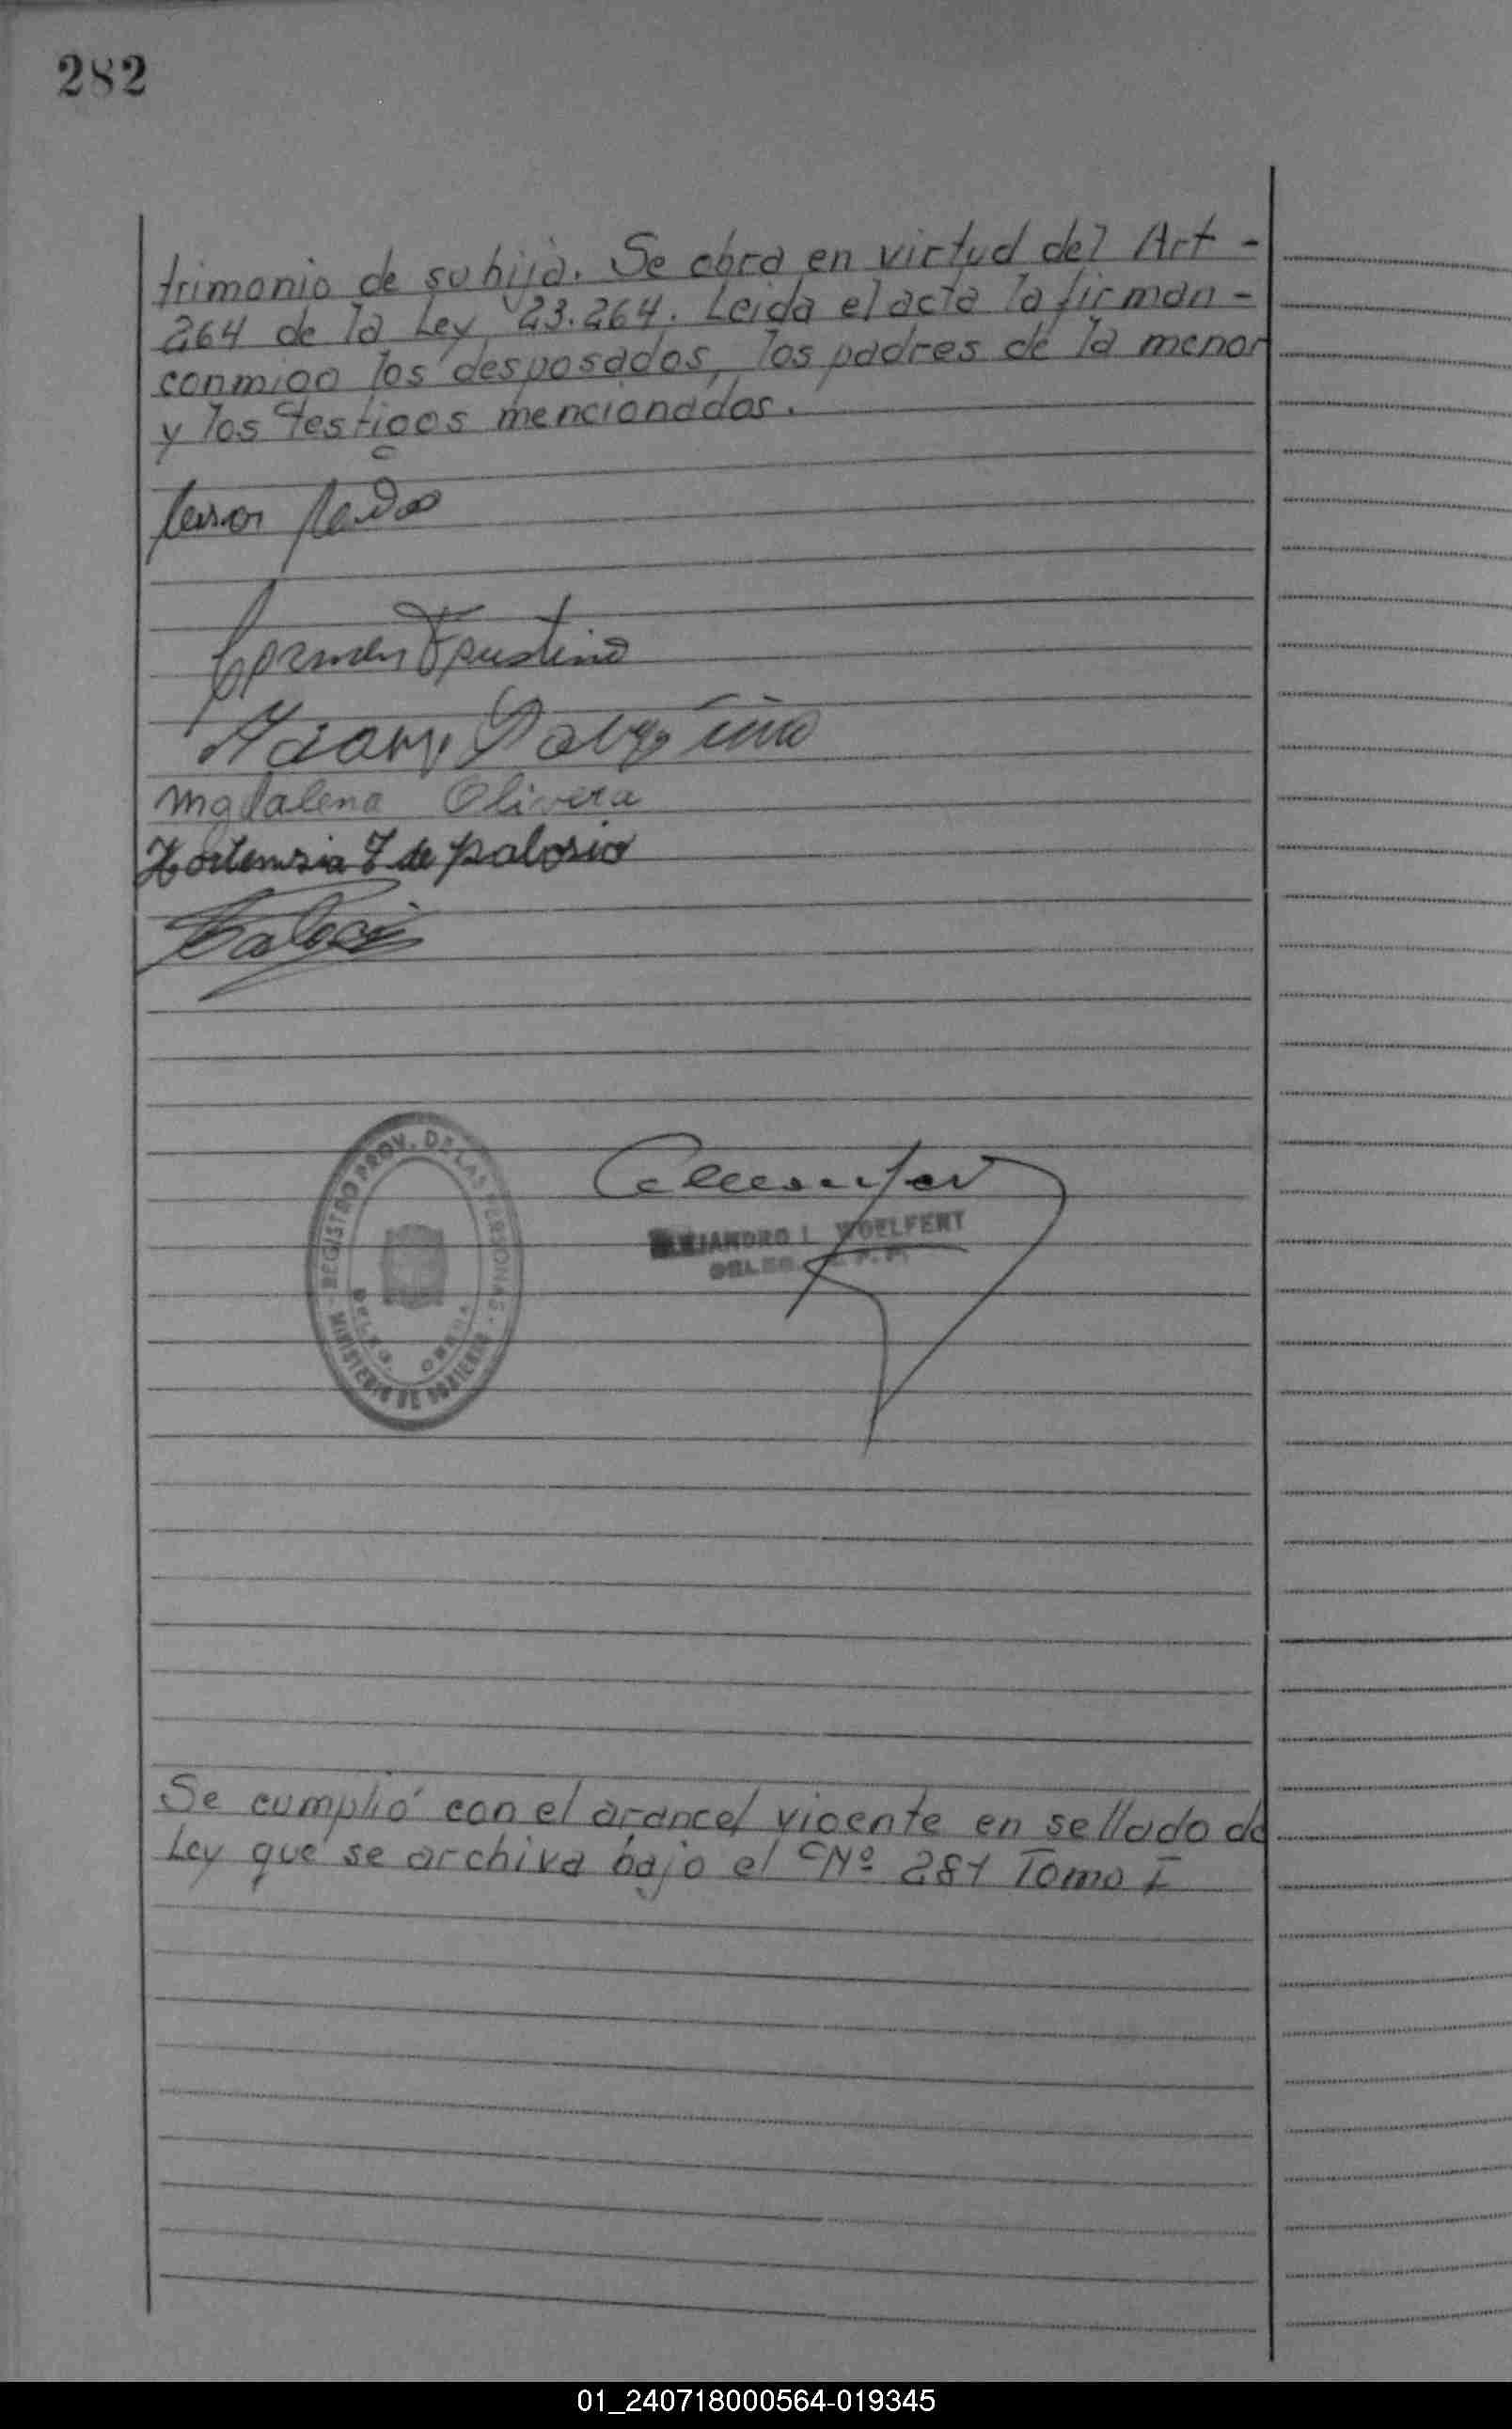 282
trimonio de su hija. Se obra en virtud del Art -
264 de la Ley 23.264. Leida el acta la firman -
conmigo los desposados, los padres de la menor
y los testigos mencionados.
Carmen Faustina
Magdalena Olivera
Hortensia T de palosio
REGISTRO PROV. DE LAS PERSONAS
MINISTERIO DE GOBIERNO
DELEG.
ALEJANDRO L. WOELFERT
DELEG.
Se cumplió con el arancel vigente en sellado de
Ley que se archiva bajo el Nº 281 Tomo I
01_240718000564-019345